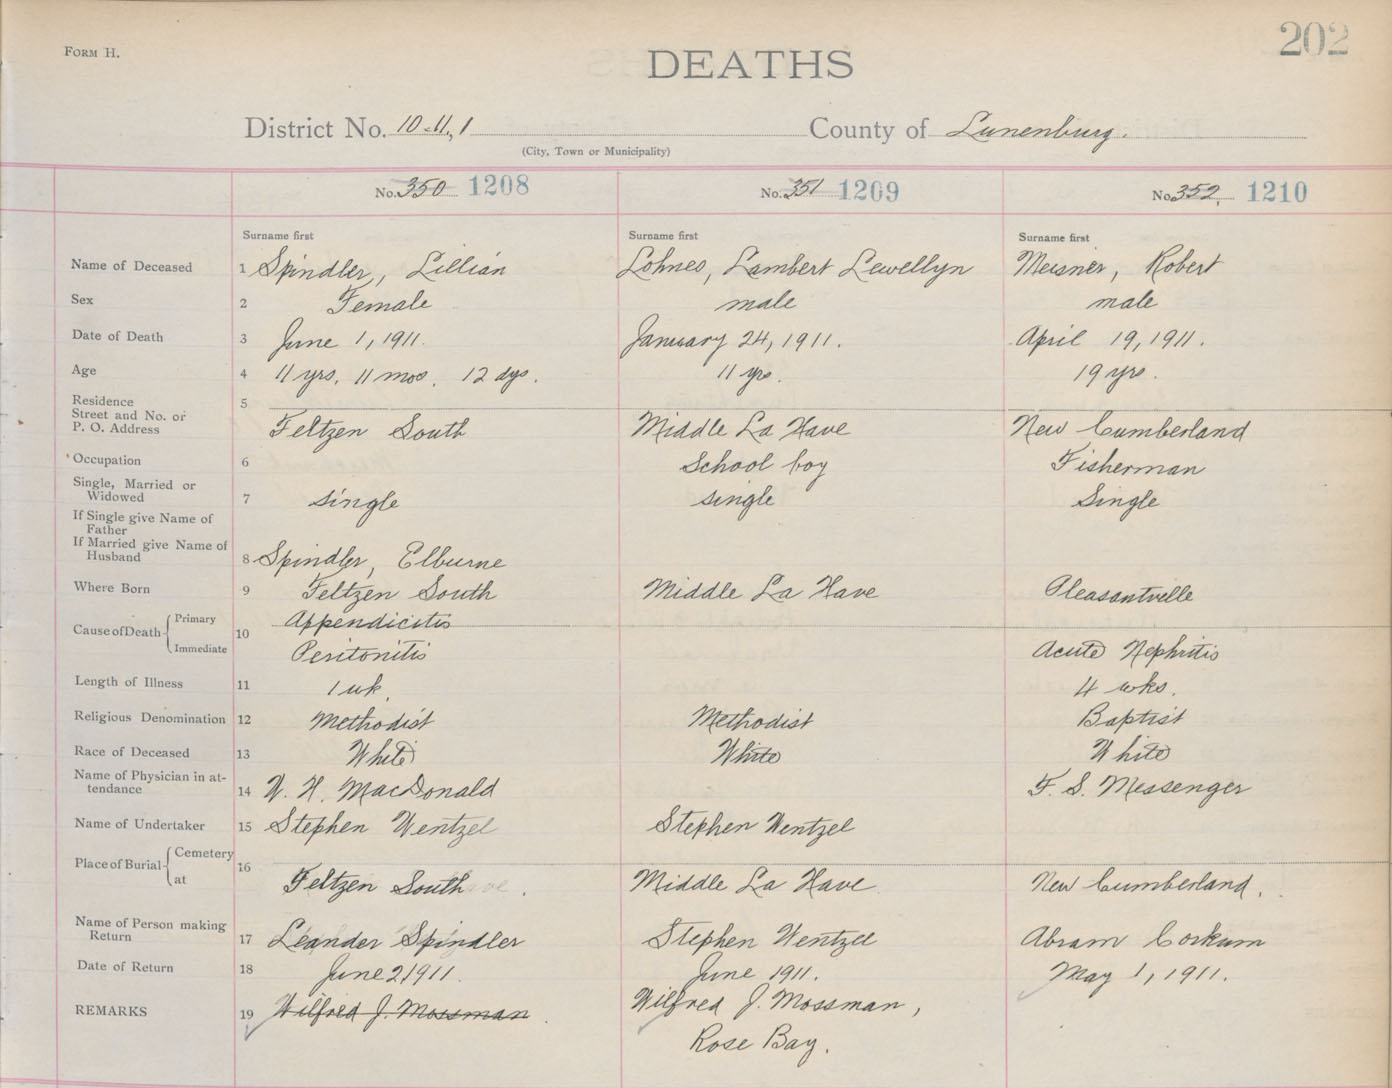 202
FORM H.
DEATHS
District No. 10-11,1 County of Lunenburg.
(City, Town or Municipality)
No. 350 1208 No. 351 1209 No. 352, 1210
Surname first Surname first Surname first
Name of Deceased 1 Spindler, Lillian Lohnes, Lambert Lewellyn Meisner, Robert
Sex 2 Female male male
Date of Death 3 June 1, 1911. January 24, 1911. April 19, 1911.
Age 4 11 yrs. 11 mos. 12 dys. 11 yrs. 19 yrs.
Residence 5
Street and No. or
P. O. Address Feltzen South Middle La Have New Cumberland
Occupation 6 School boy Fisherman
Single, Married or
Widowed 7 single single Single
If Single give Name of
Father
If Married give Name of
Husband 8 Spindler, Elburne
Where Born 9 Feltzen South Middle La Have Pleasantville
Cause of Death Primary 10 Appendicitis
Immediate Peritonitis Acute Nephritis
Length of Illness 11 1 wk. 4 wks.
Religious Denomination 12 Methodist Methodist Baptist
Race of Deceased 13 White White White
Name of Physician in at-
tendance 14 W. H. MacDonald F. S. Messenger
Name of Undertaker 15 Stephen Wentzel Stephen Wentzel
Place of Burial Cemetery 16
at Feltzen South. Middle La Have New Cumberland.
Name of Person making
Return 17 Leander Spindler Stephen Wentzel Abram Corkum
Date of Return 18 June 2, 1911. June 1911. May 1, 1911.
REMARKS 19 Wilfred J. Mossman. Wilfred J. Mossman,
Rose Bay.